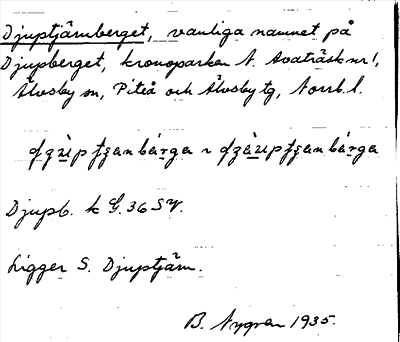 Djuptjärnberget, vanliga namnet på
Djupberget, kronoparken N. Avaträsk nr 1,
Älvsby sn, Piteå och Älvsby tg, Norrb. l.
Djupb. k G. 36 SV.
Ligger S. Djuptjärn.
B. Nygren 1935.